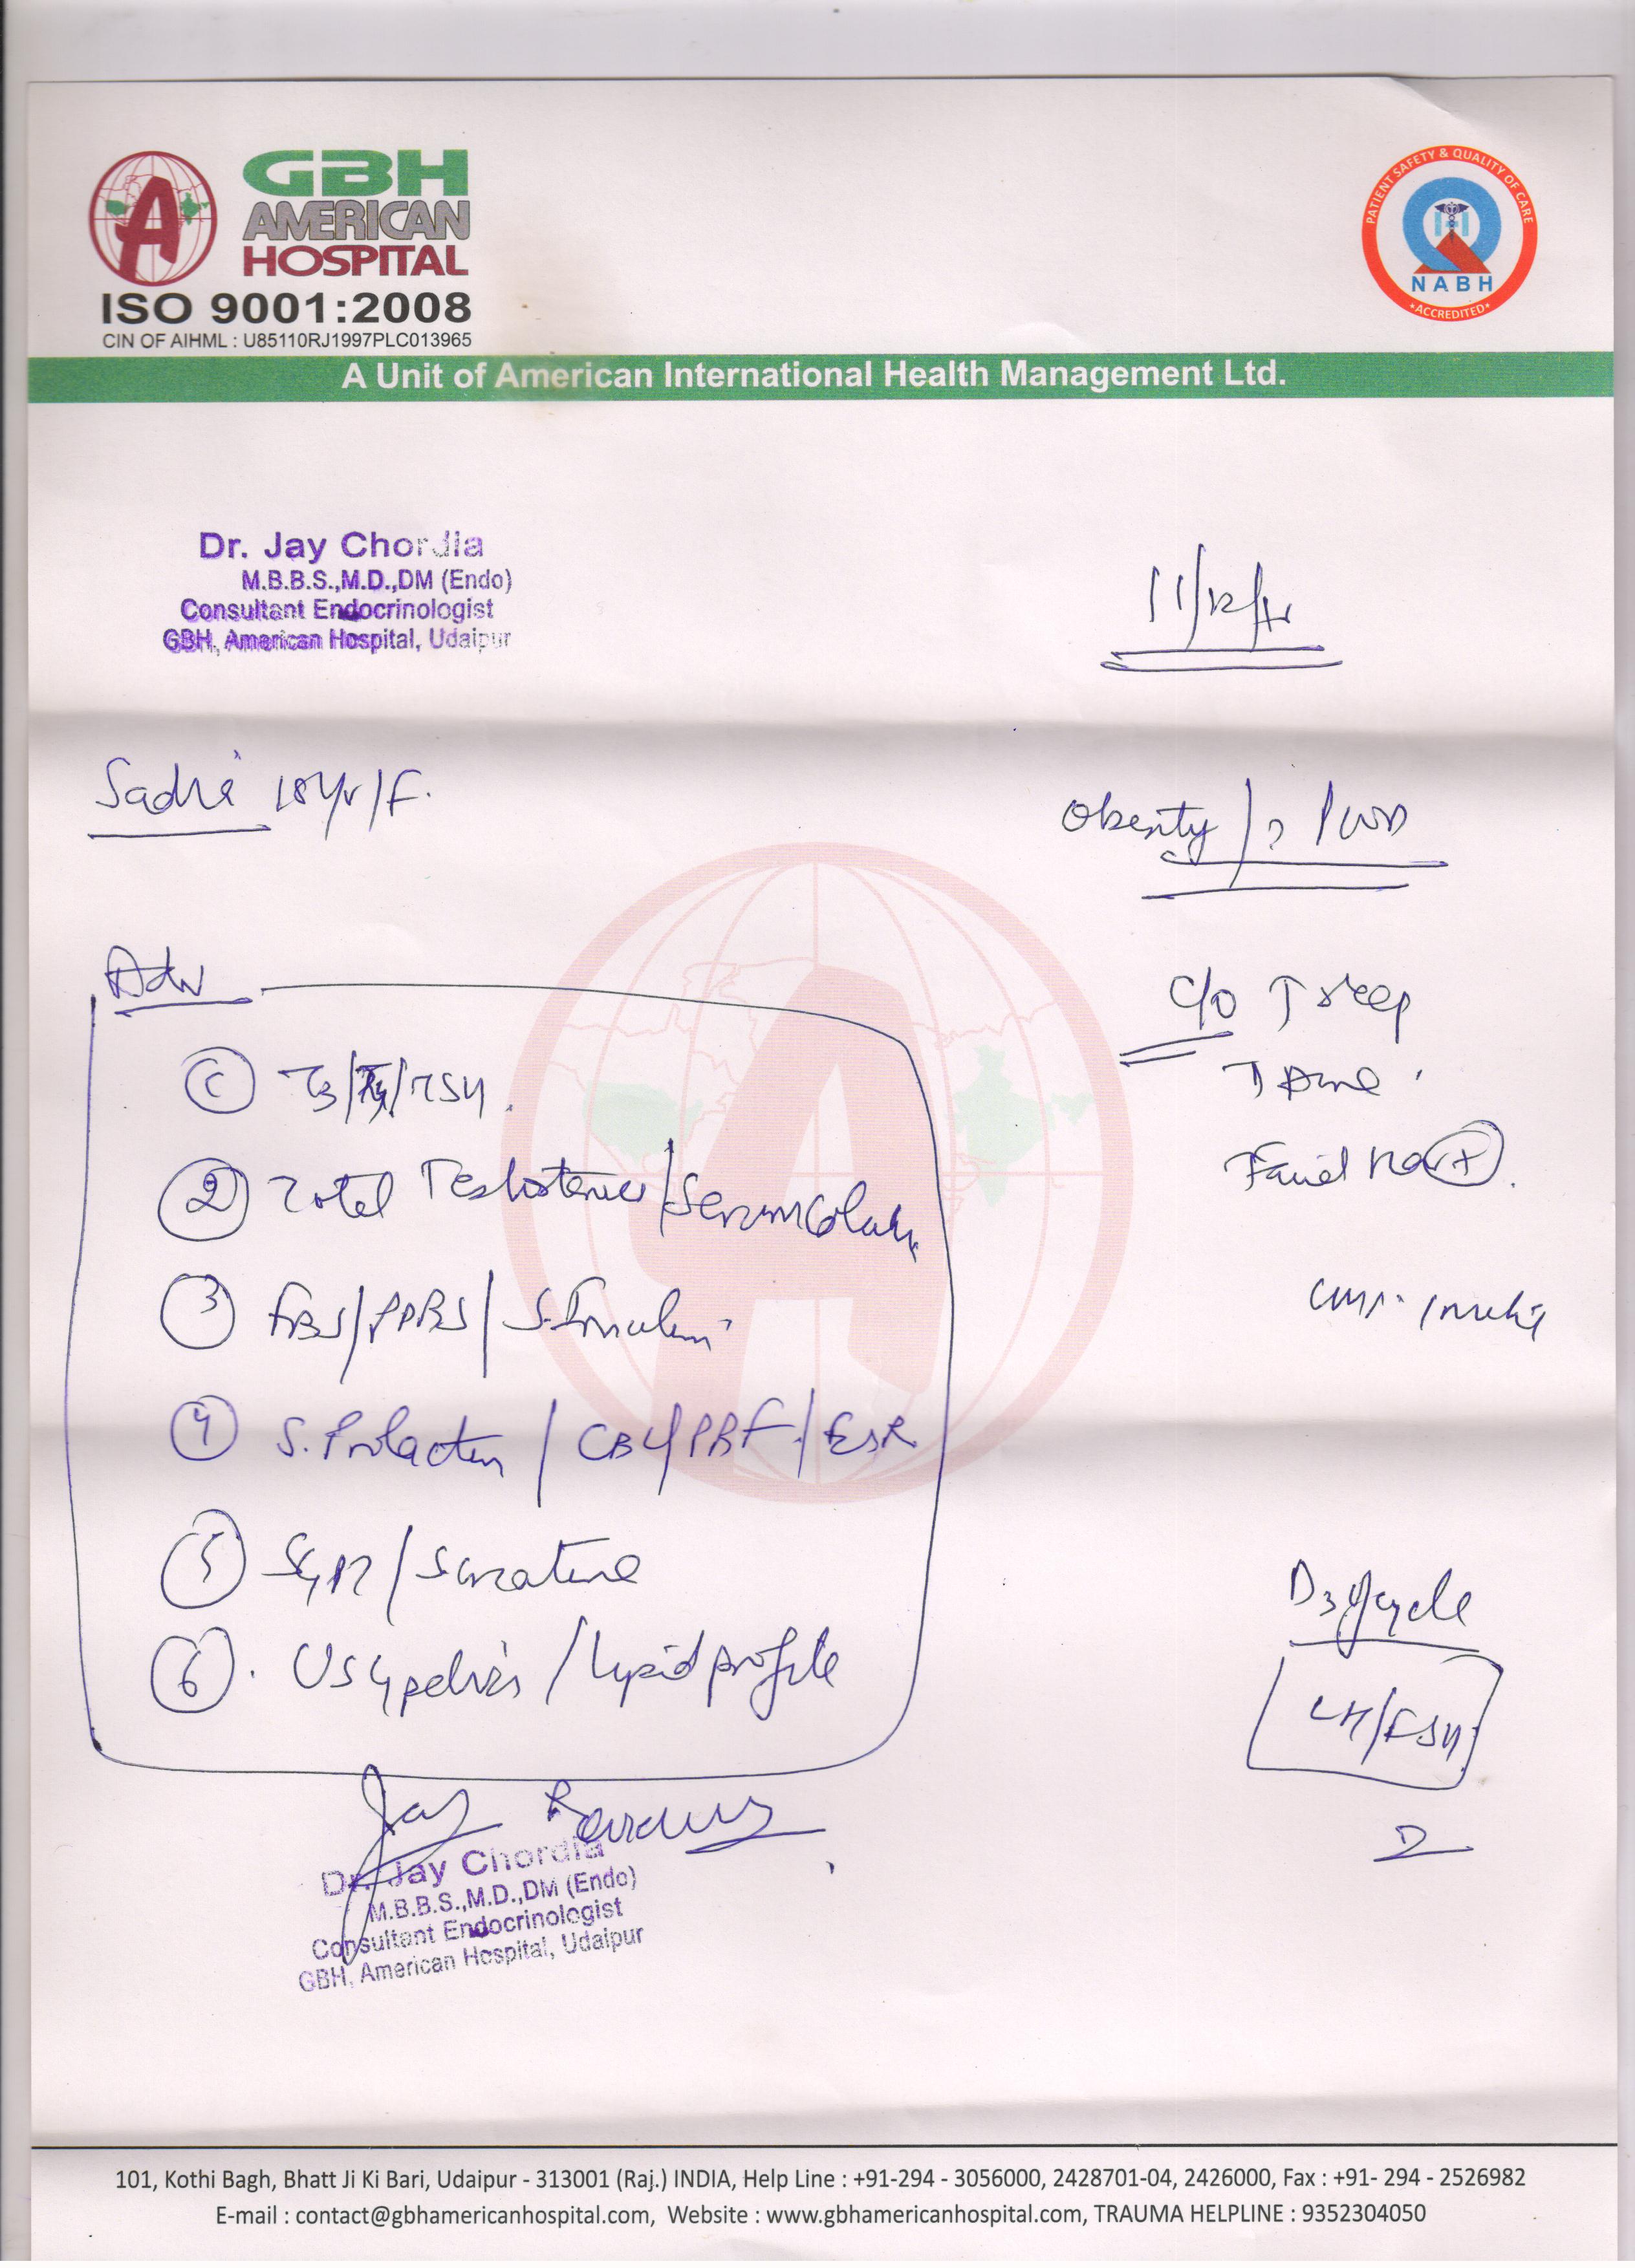 GBH
AMERICAN
HOSPITAL
ISO 9001:2008
CIN OF AIHML : U85110RJ1997PLC013965
PATIENT SAFETY & QUALITY OF CARE
NABH
ACCREDITED
A Unit of American International Health Management Ltd.
Dr. Jay Chordia
M.B.B.S.,M.D.,DM (Endo)
Consultant Endocrinologist
GBH, American Hospital, Udaipur
11/12/
18Yr/F.
Obesity / ?
Adv
C/O
T3/T4/TSH
② Total Testosterone/Serum
③ FBS/PPBS/S.Insulin
④ S. Prolactin / CBC/PBF/ESR
⑤ SGPT/S creatine
⑥. USG pelvis / Lipid profile
D3 of cycle
LH/FSH
Jay
Dr. Jay Chordia
M.B.B.S.,M.D.,DM (Endo)
Consultant Endocrinologist
GBH, American Hospital, Udaipur
101, Kothi Bagh, Bhatt Ji Ki Bari, Udaipur - 313001 (Raj.) INDIA, Help Line : +91-294 - 3056000, 2428701-04, 2426000, Fax : +91- 294 - 2526982
E-mail : contact@gbhamericanhospital.com, Website : www.gbhamericanhospital.com, TRAUMA HELPLINE : 9352304050